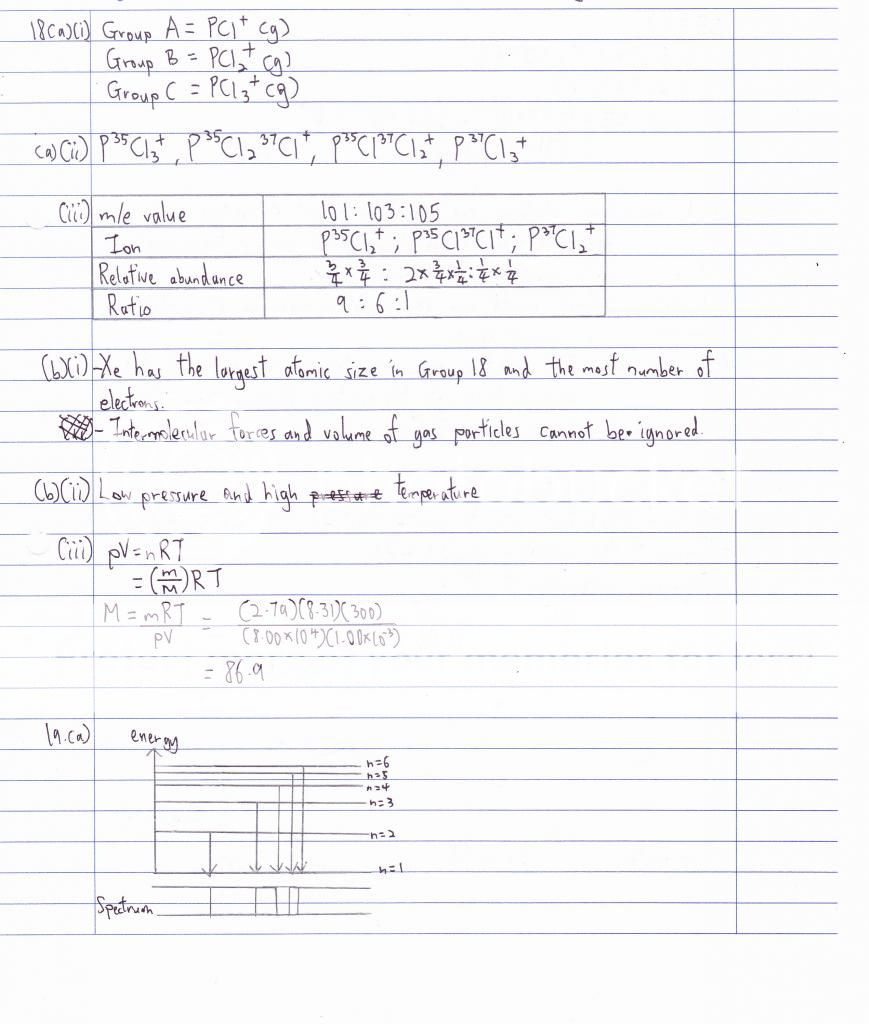 18(a)(i) Group A = PCl⁺ (g)
Group B = PCl₂⁺ (g)
Group C = PCl₃⁺ (g)
(a)(ii) P³⁵Cl₃⁺, P³⁵Cl₂³⁷Cl⁺, P³⁵Cl³⁷Cl₂⁺, P³⁷Cl₃⁺
(iii) m/e value 101 : 103 : 105
Ion P³⁵Cl₂⁺ ; P³⁵Cl³⁷Cl⁺ ; P³⁷Cl₂⁺
Relative abundance 3/4 × 3/4 : 2 × 3/4 × 1/4 : 1/4 × 1/4
Ratio 9 : 6 : 1
(b)(i) - Xe has the largest atomic size in Group 18 and the most number of
electrons.
- Intermolecular forces and volume of gas particles cannot be ignored.
(b)(ii) Low pressure and high pressure temperature
(iii) pV = nRT
= (m/M)RT
M = mRT/pV = (2.79)(8.31)(300)/(8.00×10⁴)(1.00×10⁻³)
= 86.9
19.(a) energy
n=6
n=5
n=4
n=3
n=2
n=1
Spectrum